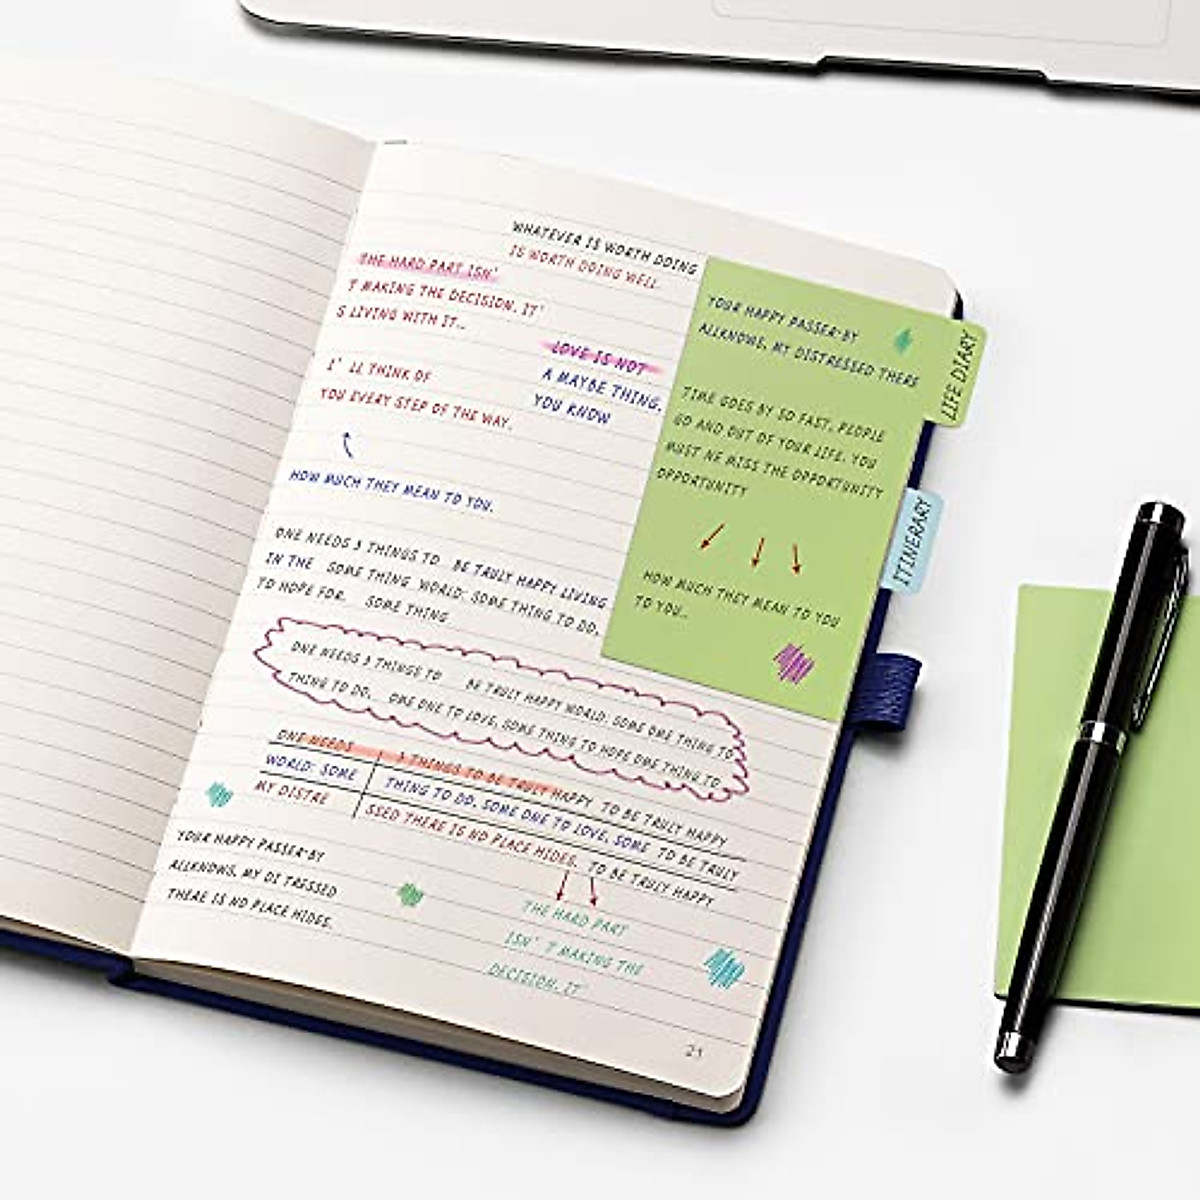 WHATEVER IS WORTH DOING
IS WORTH DOING WELL.
THE HARD PART ISN'
T MAKING THE DECISION. IT'
S LIVING WITH IT..
LOVE IS NOT
A MAYBE THING.
YOU KNOW
I' LL THINK OF
YOU EVERY STEP OF THE WAY.
HOW MUCH THEY MEAN TO YOU.
ONE NEEDS 3 THINGS TO BE TRULY HAPPY LIVING
IN THE SOME THING WORLD: SOME THING TO DO,
TO HOPE FOR. SOME THING
ONE NEEDS 3 THINGS TO BE TRULY HAPPY WORLD: SOME ONE THING TO
THING TO DO, OME ONE TO LOVE, SOME THING TO HOPE OME THING TO
ONE NEEDS 3 THINGS TO BE TRULY HAPPY TO BE TRULY HAPPY
WORLD: SOME THING TO DO, SOME ONE TO LOVE, SOME TO BE TRULY
MY DISTRE SSED THERE IS NO PLACE HIDES. TO BE TRULY HAPPY
YOUR HAPPY PASSER-BY
ALLKNOWS, MY DI TRESSED
THERE IS NO PLACE HIDES.
THE HARD PART
ISN' T MAKING THE
DECISION. IT
21
YOUR HAPPY PASSER-BY
ALLKNOWS, MY DISTRESSED THERE
TIME GOES BY SO FAST, PEOPLE
GO AND OUT OF YOUR LIFE. YOU
MUST NE MISS THE OPPORTUNITY
OPPORTUNITY
HOW MUCH THEY MEAN TO YOU
TO YOU..
LIFE DIARY
ITINERARY